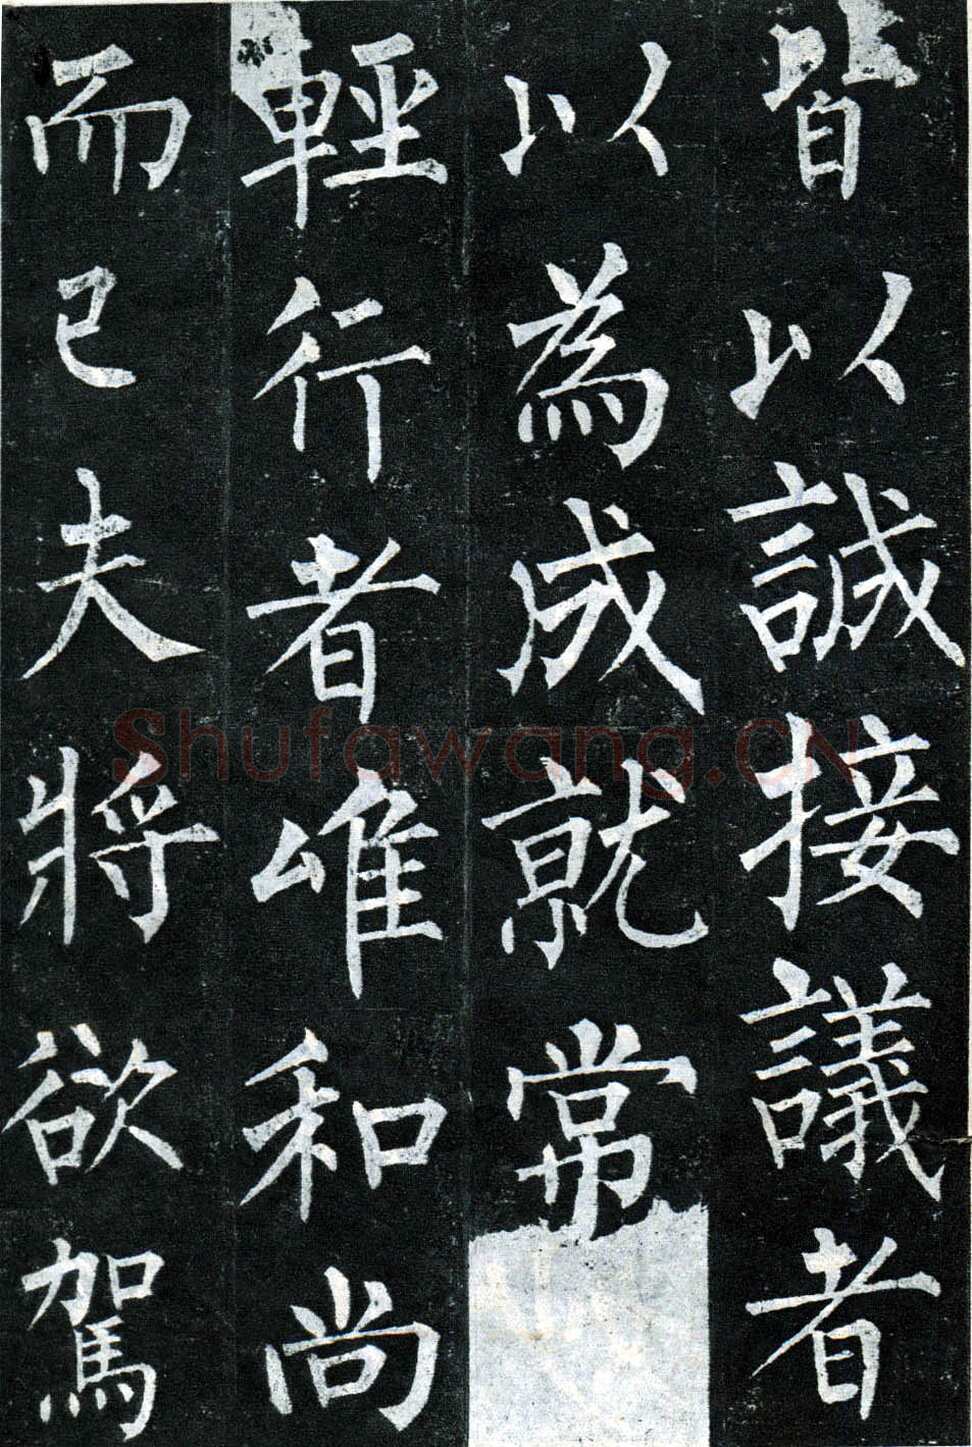 皆以誠接議者
以為成就常
輕行者唯和尚
而已夫將欲駕
Shufawang.CN